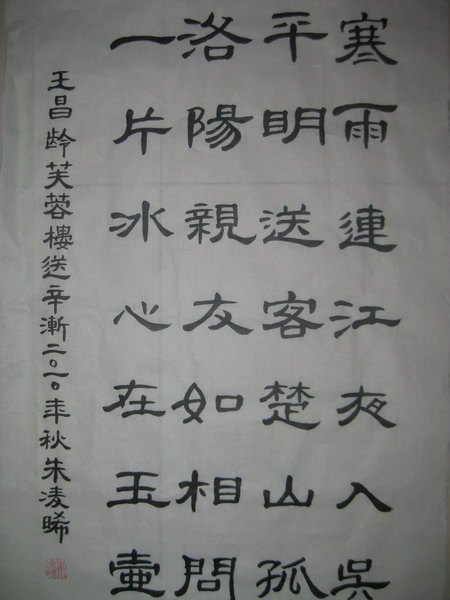 寒雨連江夜入吳
平明送客楚山孤
洛陽親友如相問
一片冰心在玉壺
王昌龄芙蓉樓送辛漸二〇一〇年秋朱凌晞